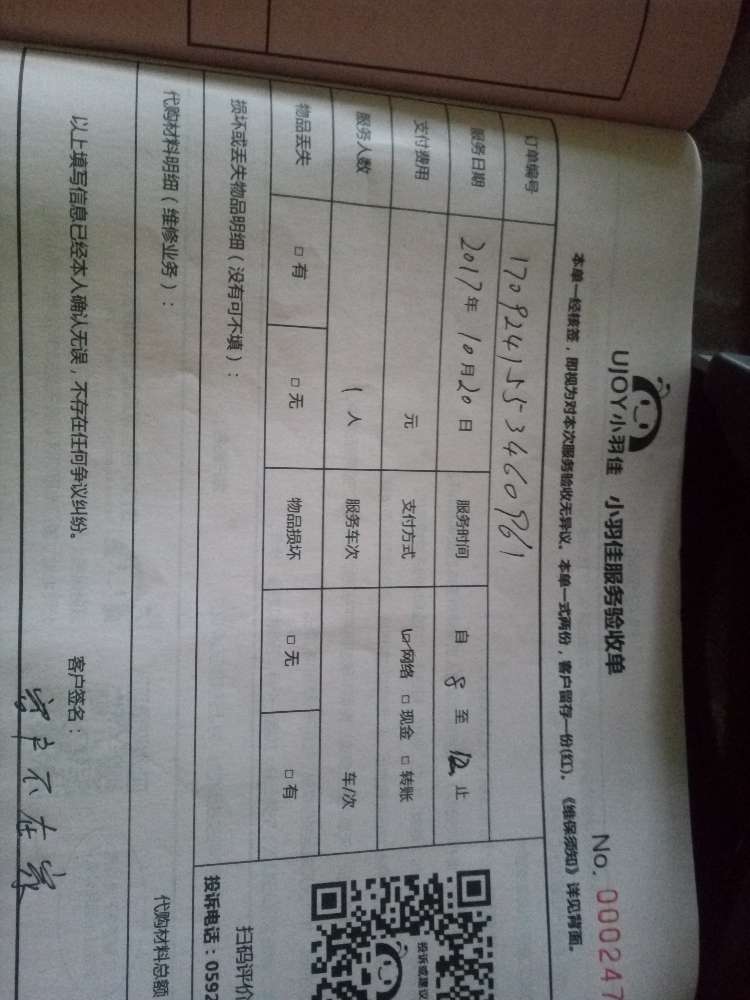 UJOY小羽佳 小羽佳服务验收单
No. 000247
本单一经核签，即视为对本次服务验收无异议。本单一式两份，客户留存一份(红)。《维保须知》详见背面。
订单编号 1709241553460961
服务日期 2017年10月20日 服务时间 自 8 至 12 止
支付费用 元 支付方式 ☑网络 □现金 □转账
服务人数 1人 服务车次 车/次
物品丢失 □有 □无 物品损坏 □无 □有
损坏或丢失物品明细（没有可不填）：
代购材料明细（维修业务）： 代购材料总额
以上填写信息已经本人确认无误，不存在任何争议纠纷。 客户签名：
客户不在家
投诉或建议
扫码评价
投诉电话：0592